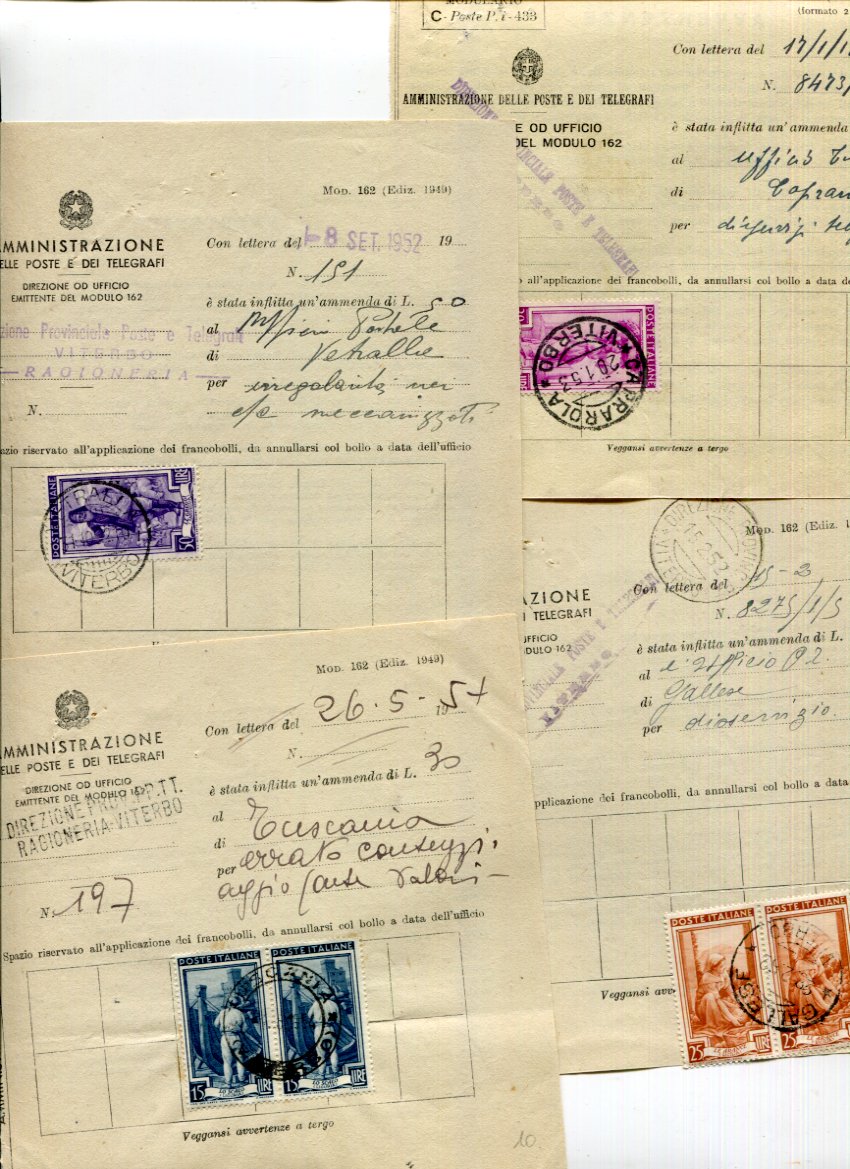 MODULARIO
C - Poste P. T. - 433
(formato 2
AMMINISTRAZIONE DELLE POSTE E DEI TELEGRAFI
E OD UFFICIO
DEL MODULO 162
DIREZIONE PROVINCIALE POSTE E TELEGRAFI
VITERBO
Con lettera del 17/1/1
N. 8473/
è stata inflitta un'ammenda
al uffici
di Capran
per
all'applicazione dei francobolli, da annullarsi col bollo a data de
50
POSTE ITALIANE
CAPRAROLA * VITERBO *
29.1.53
Veggansi avvertenze a tergo
MOD. 162 (Ediz. 1949)
MMINISTRAZIONE
ELLE POSTE E DEI TELEGRAFI
DIREZIONE OD UFFICIO
EMITTENTE DEL MODULO 162
zione Provinciale Poste e Telegrafi
VITERBO
— RAGIONERIA —
N.
Con lettera del -8 SET. 1952 19
N. 151
è stata inflitta un'ammenda di L. 50
al Ufficio Postale
di Vetralla
per irregolarità nei
c/c meccanizzati
pazio riservato all'applicazione dei francobolli, da annullarsi col bollo a data dell'ufficio
POSTE ITALIANE
50 LIRE
VITERBO
MOD. 162 (Ediz. 1
AZIONE
I TELEGRAFI
UFFICIO
DULO 162
VINCIALE POSTE E TELEGRAFI
VITERBO
DIREZIONE PROVINC
VITERBO
15.2.52
Con lettera del 15-2
N. 8275/1/5
è stata inflitta un'ammenda di L.
al l'Ufficio P.T.
di Gallese
per disservizio.
applicazione dei francobolli, da annullarsi col bollo a data
POSTE ITALIANE
POSTE ITALIANE
25
25
GALLESE
Veggansi avve
MOD. 162 (Ediz. 1949)
MMINISTRAZIONE
ELLE POSTE E DEI TELEGRAFI
DIREZIONE OD UFFICIO
EMITTENTE DEL MODULO 162
DIREZIONE PROV. P.TT.
RAGIONERIA-VITERBO
N. 197
Con lettera del 26.5-54
N.
è stata inflitta un'ammenda di L. 30
al
di Tuscania
per errato conteggi.
aggio carte valori-
Spazio riservato all'applicazione dei francobolli, da annullarsi col bollo a data dell'ufficio
POSTE ITALIANE
POSTE ITALIANE
15 LIRE
15 LIRE
TUSCANIA
Veggansi avvertenze a tergo
10